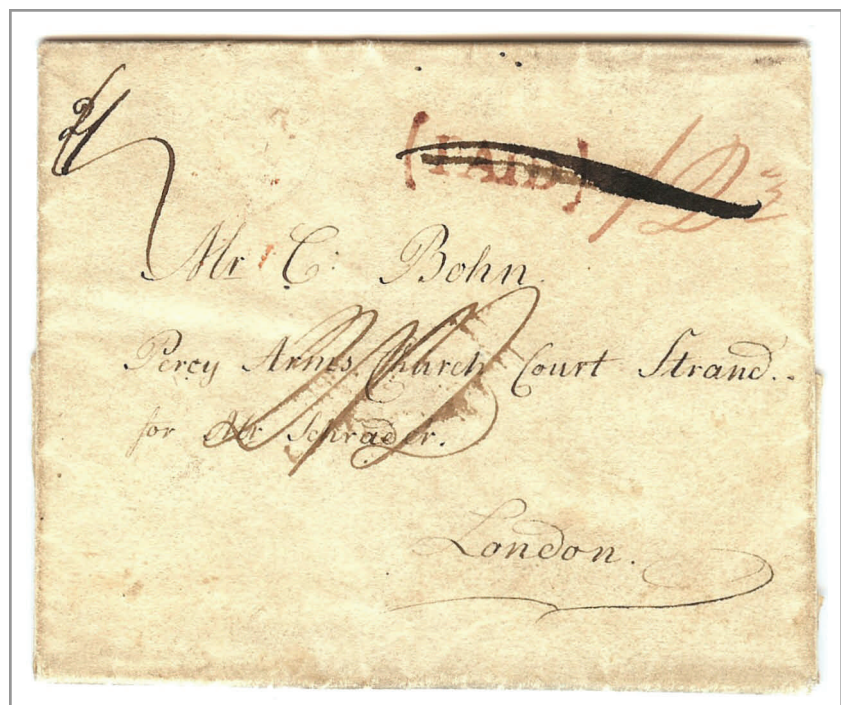 (PAID)
Mr C: Bohn
Percy Arms Church Court Strand..
for Mr Schrader.
London.